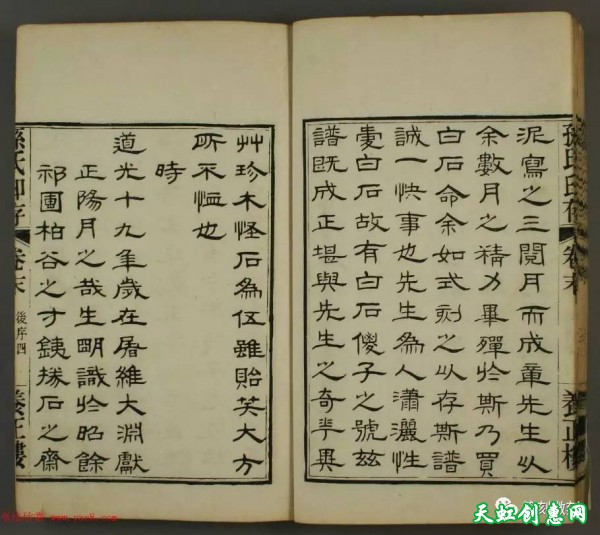 泥寫之三閱月而成章先生以
余數月之精力畢殫於斯乃買
白石命余如式刻之以存斯譜
誠一快事也先生為人瀟灑性
耽白石故有白石儍子之號茲
譜既成正堪與先生之奇萃異
艸珍木怪石為伍雖貽笑大方
所不恤也
時
道光十九年歲在屠維大淵獻
正陽月之哉生明識於昭餘
祁圃柏谷之寸銕掾石之齋
孫氏印存
卷末
後序四
養正樓
孫氏印存
卷末
養正樓
天虹创惠网